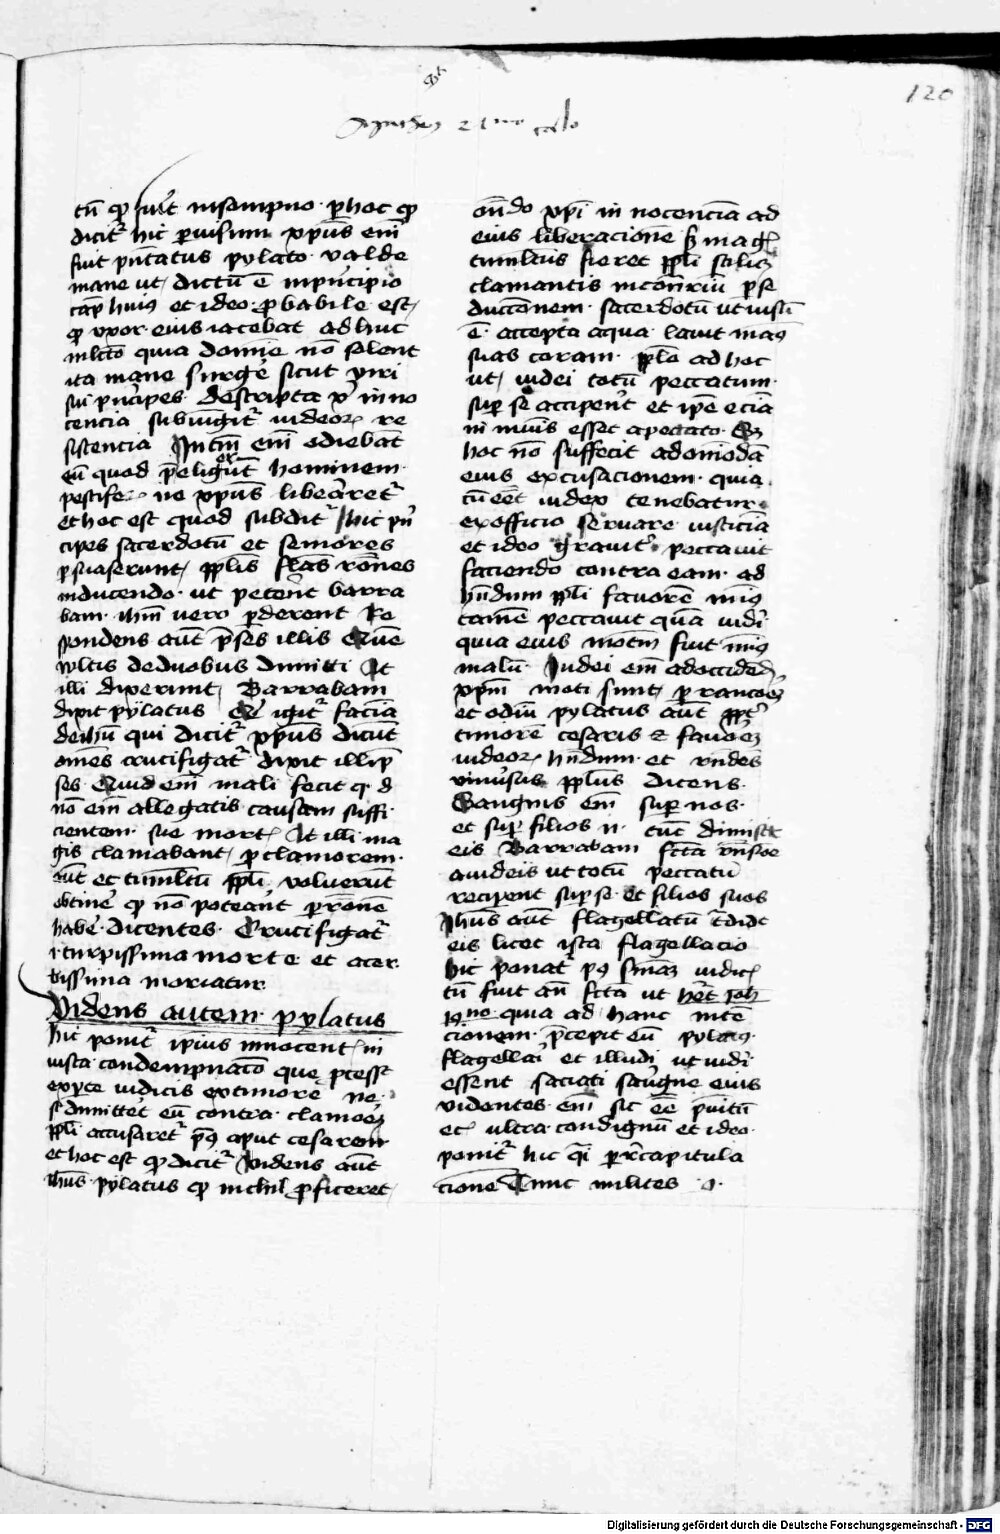 120
tū ꝙ fuit in sompno · per hoc ꝙ
dicit᷑ hic per visum xpūs em̄
fuit pn̄tatus pylato · valde
mane ut dictū ē in pⁱncipio
cap huius et ideo probabile est
ꝙ vxor eius iacebat ad huc
in lc̄to quia domine nō solent
ita mane surgere sicut viri
sui pⁱncipes · descripta xⁱ inno
cencia subiūgit᷑ iudeoꝝ re
sistencia Jn tm̄ em̄ odiebāt
eū quod p̄eligerūt hominem
pestiferū ne xpūs liberaret᷑
et hoc est quod subdit᷑ hic pⁱn
cipes sacerdotū et seniores
persuaserunt pp̄lis falsas rōnes
inducendo · ut peterēt barra
bam · ihm̄ vero perderent Re
spondens aūt p̄ses illis Quē
vultis de duobus dimitti At
illi dixerunt Barrabam
dixit pylatus Qⁱd igit᷑ faciā
de ihū qui dicit᷑ xpūs dicūt
om̄es crucifigat᷑ dixit illis p̄
ses · Quid em̄ mali fecit q · d
nō em̄ allegatis causam suffi
cientem · sue mortꝭ At illi ma
gis clamabant per clamorem
aūt et tumltū pp̄li voluerūt
obtine᷑ ꝙ nō poterāt per rōnem
habe᷑ · dicentes · Crucifigat᷑
i · turpissima morte et acer
bissima moriatur
Videns autem pylatus
hic ponit᷑ ipsius innocentꝭ in
iusta condempnacō que p̄cessit
ex parte iudicis ex timore ne
si dimitteret eū contra clamorē
pp̄li accusaret᷑ p̄ꝰ aput cesarem
et hoc est ꝙ dicit᷑ Videns aūt
ihūs pylatus ꝙ nichil proficeret
on̄do xpī in nocenciā ad
eius liberacionē sꝫ magꝭ
tumltus fieret pp̄li scilicꝫ
clamantis in cōn̄riū per se
ductionem · sacerdotū ut visū
ē · accepta aqua lauit manꝰ
suas coram pp̄lo ad hoc
ut iudei totū peccatum
super se acciperēt et ipē eciā
in munis esset a peccato · Sꝫ
hoc nō suffecit ad omīodā
eius excusacionem · quia
cū eēt iudex tenebatur
ex officio seruare iusticiā
et ideo grauit᷑ peccauit
faciendo contra eam · ad
hn̄dum pp̄li fauorē minꝰ
tamē peccauit quā iudei
quia eius motiuū fuit minꝰ
malū · Judei em̄ ad occidendū
xpm̄ moti sunt per rancorē
et odiū pylatus aūt propt᷑
timorē cesaris et fauorē
iudeoꝝ hn̄dum · et rn̄dēs
vniusus pp̄lus dicens
Sangwis eiꝰ super nos ·
et super filios n · tūc dimisit
eis Barrabam fc̄ta rn̄sione
a iudeis ut totū peccatū
reciperent super se et filios suos
Jhūs aūt flagellatū t᷑didit
eis licet ista flagellacio
hic ponat᷑ pꝰ sn̄iaꝫ iudicꝭ
tū fuit an̄ fc̄ta ut het᷑ Joh
19no quia ad hanc intē
cionem p̄cepit eū pylatꝰ
flagellari et illudi ut iudei
essent saciati sangwine eius
videntes em̄ sic eē punitū
ec̄ ultra condignū et ideo
ponit᷑ hic qⁱ per recapitula
cionē Tunc milites · a ·
Digitalisierung gefördert durch die Deutsche Forschungsgemeinschaft - DFG